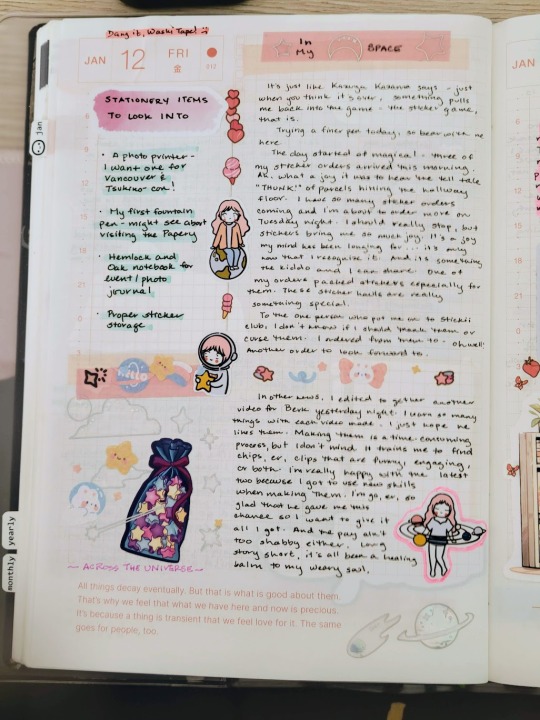 Dang it, Washi Tape! :)
JAN 12 FRI
金
012
In My SPACE
STATIONERY ITEMS
TO LOOK INTO
• A photo printer -
I want one for
Vancouver &
Tsukiko con!
• My first fountain
pen - might see about
visiting the Papery
• Hemlock and
Oak notebook for
event / photo
journal
• Proper sticker
storage
It's just like Kazuya Kazama says - just
when you think it's over, something pulls
me back into the game - the sticker game,
that is.
Trying a finer pen today, so bear with me
here.
The day started of magical! - three of
my sticker orders arrived this morning.
Ah, what a joy it was to hear the tell tale
"THUNK!" of parcels hitting the hallway
floor. I have so many sticker orders
coming and I'm about to order more on
Tuesday night. I should really stop, but
stickers bring me so much joy. It's a joy
my mind has been longing for... it's only
now that I recognize it. And it's something
the kiddo and I can share. One of
my orders packed stickers especially for
them. These sticker hauls are really
something special.
To the one person who put me on to Stickii
club, I don't know if I should thank them or
curse them. I ordered from them too - oh well!
Another order to look forward to.
HELLO
In other news, I edited together another
video for Berk yesterday night. I learn so many
things with each video made. I just hope he
likes them. Making them is a time-consuming
process, but I don't mind. It trains me to find
chips, er, clips that are funny, engaging,
or both. I'm really happy with the latest
two because I got to use new skills
when making them. I'm go, er, so
glad that he gave me this
chance so I want to give it
all I got. And the pay ain't
too shabby either. Long
story short, it's all been a healing
balm to my weary soul.
~ ACROSS THE UNIVERSE ~
All things decay eventually. But that is what is good about them.
That's why we feel that what we have here and now is precious.
It's because a thing is transient that we feel love for it. The same
goes for people, too.
jan
yearly
monthly
JAN